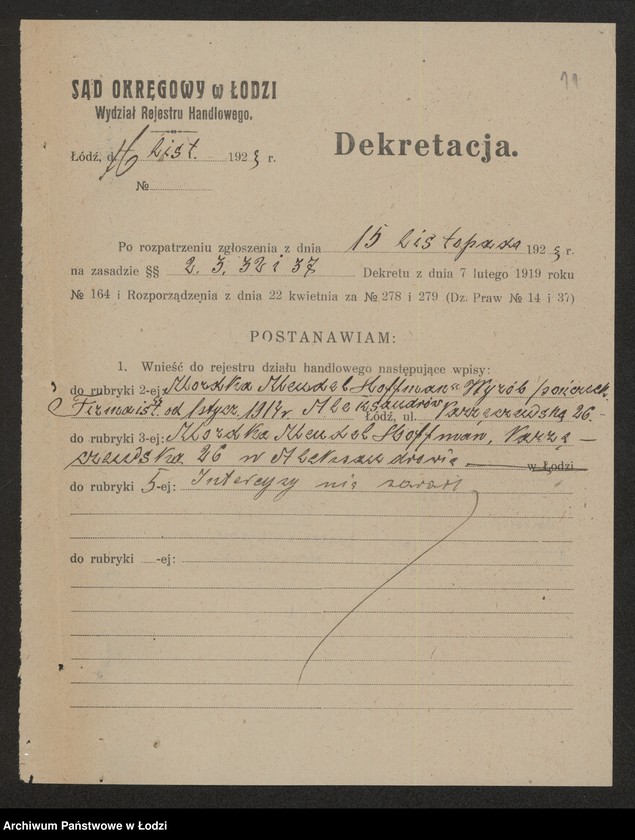 11
SĄD OKRĘGOWY w ŁODZI
Wydział Rejestru Handlowego.
Dekretacja.
Łódź, d. 16 List. 1923 r.
№
Po rozpatrzeniu zgłoszenia z dnia 15 Listopada 1923 r.
na zasadzie §§ 2. 3. 32 i 37 Dekretu z dnia 7 lutego 1919 roku
№ 164 i Rozporządzenia z dnia 22 kwietnia za № 278 i 279 (Dz. Praw № 14 i 37)
POSTANAWIAM:
1. Wnieść do rejestru działu handlowego następujące wpisy:
do rubryki 2-ej: „Mordka Mendel Hoffman" Wyrób pończoch.
Firma ist. od 1 stycz. 1917 r. Aleksandrów Łódź, ul. Varzęczewska 26.-
do rubryki 3-ej: Mordka Mendel Hoffman, Varzę-
czewska 26 w Aleksandrowie w Łodzi
do rubryki 5-ej: Intercyzy nie zawarł
do rubryki -ej:
Archiwum Państwowe w Łodzi